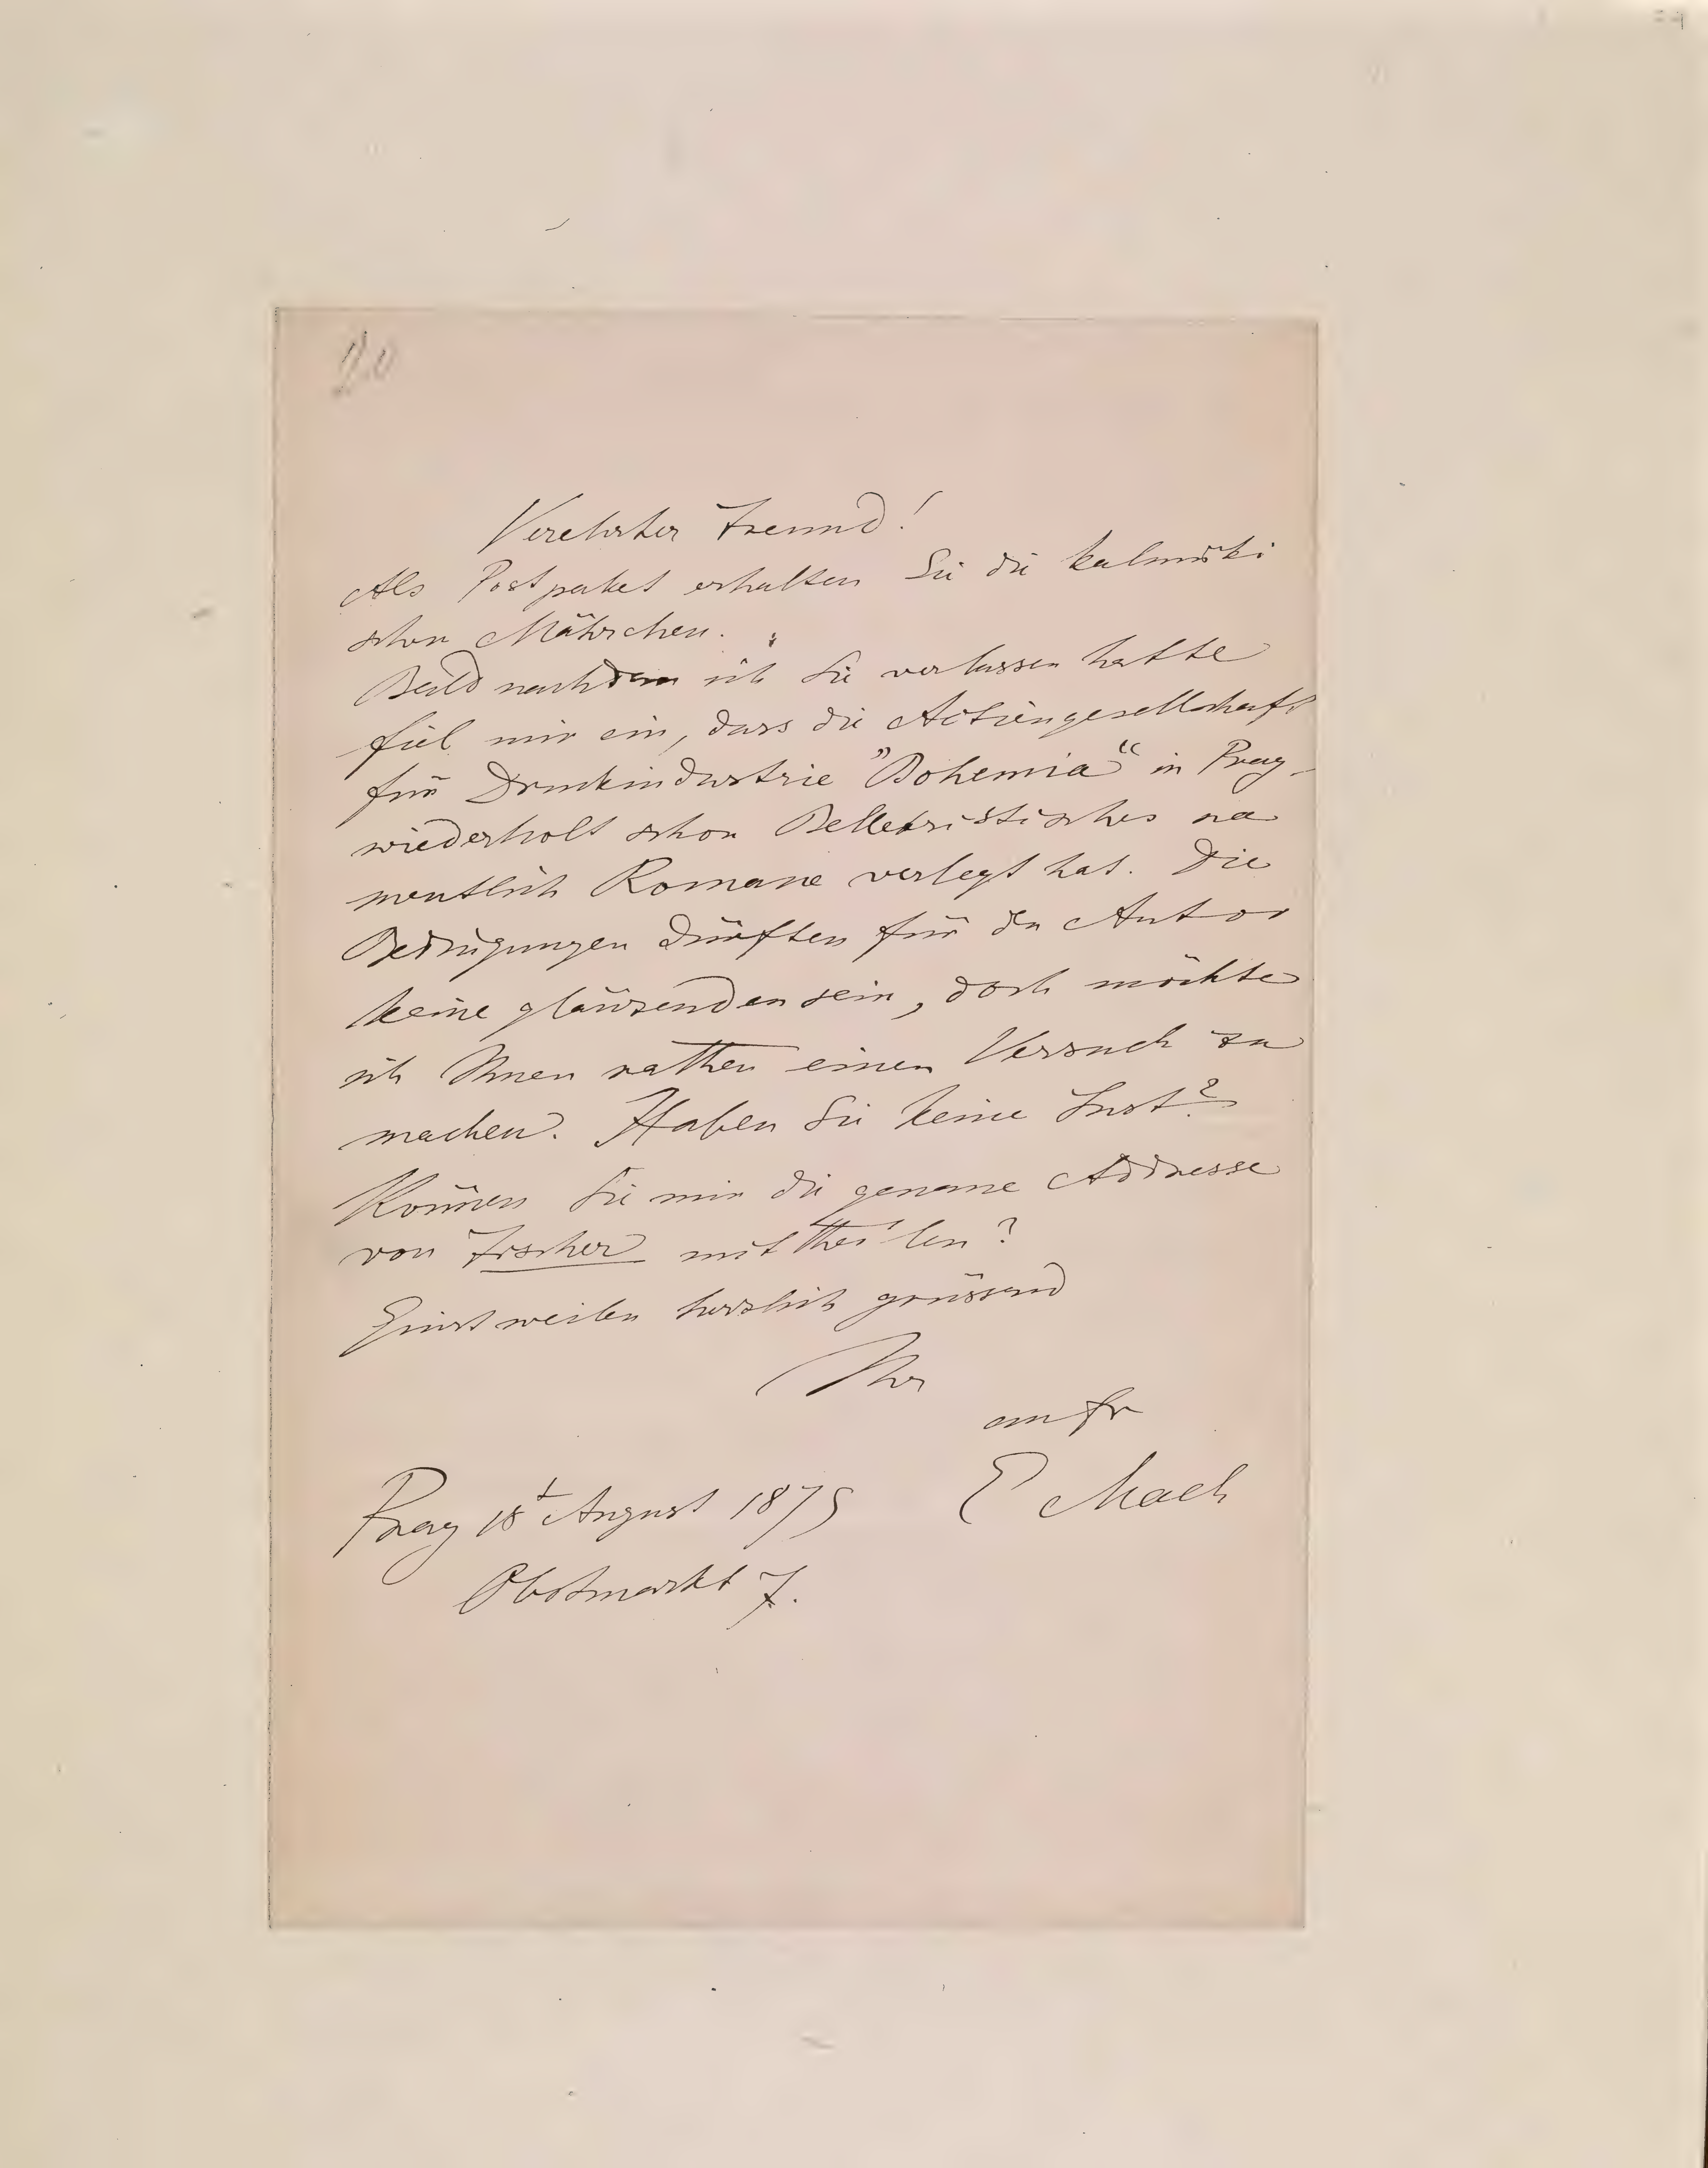 20
Verehrter Freund!
Als Postpaket erhalten Sie die kalmüki
schen Mährchen.
Bald nachdem ich Sie verlassen hatte
fiel mir ein, dass die Actiengesellschaft
für Druckindustrie "Bohemia" in Prag
wiederholt schon Belletristisches na
mentlich Romane verlegt hat. Die
Bedingungen dürften für den Autor
keine glänzenden sein, doch möchte
ich Ihnen rathen einen Versuch zu
machen. Haben Sie keine Lust?
Können Sie mir die genaue Addresse
von Fischer mittheilen?
Einstweilen herzlich grüssend
Ihr
E Mach
Prag August 1875
Obstmarkt 7.